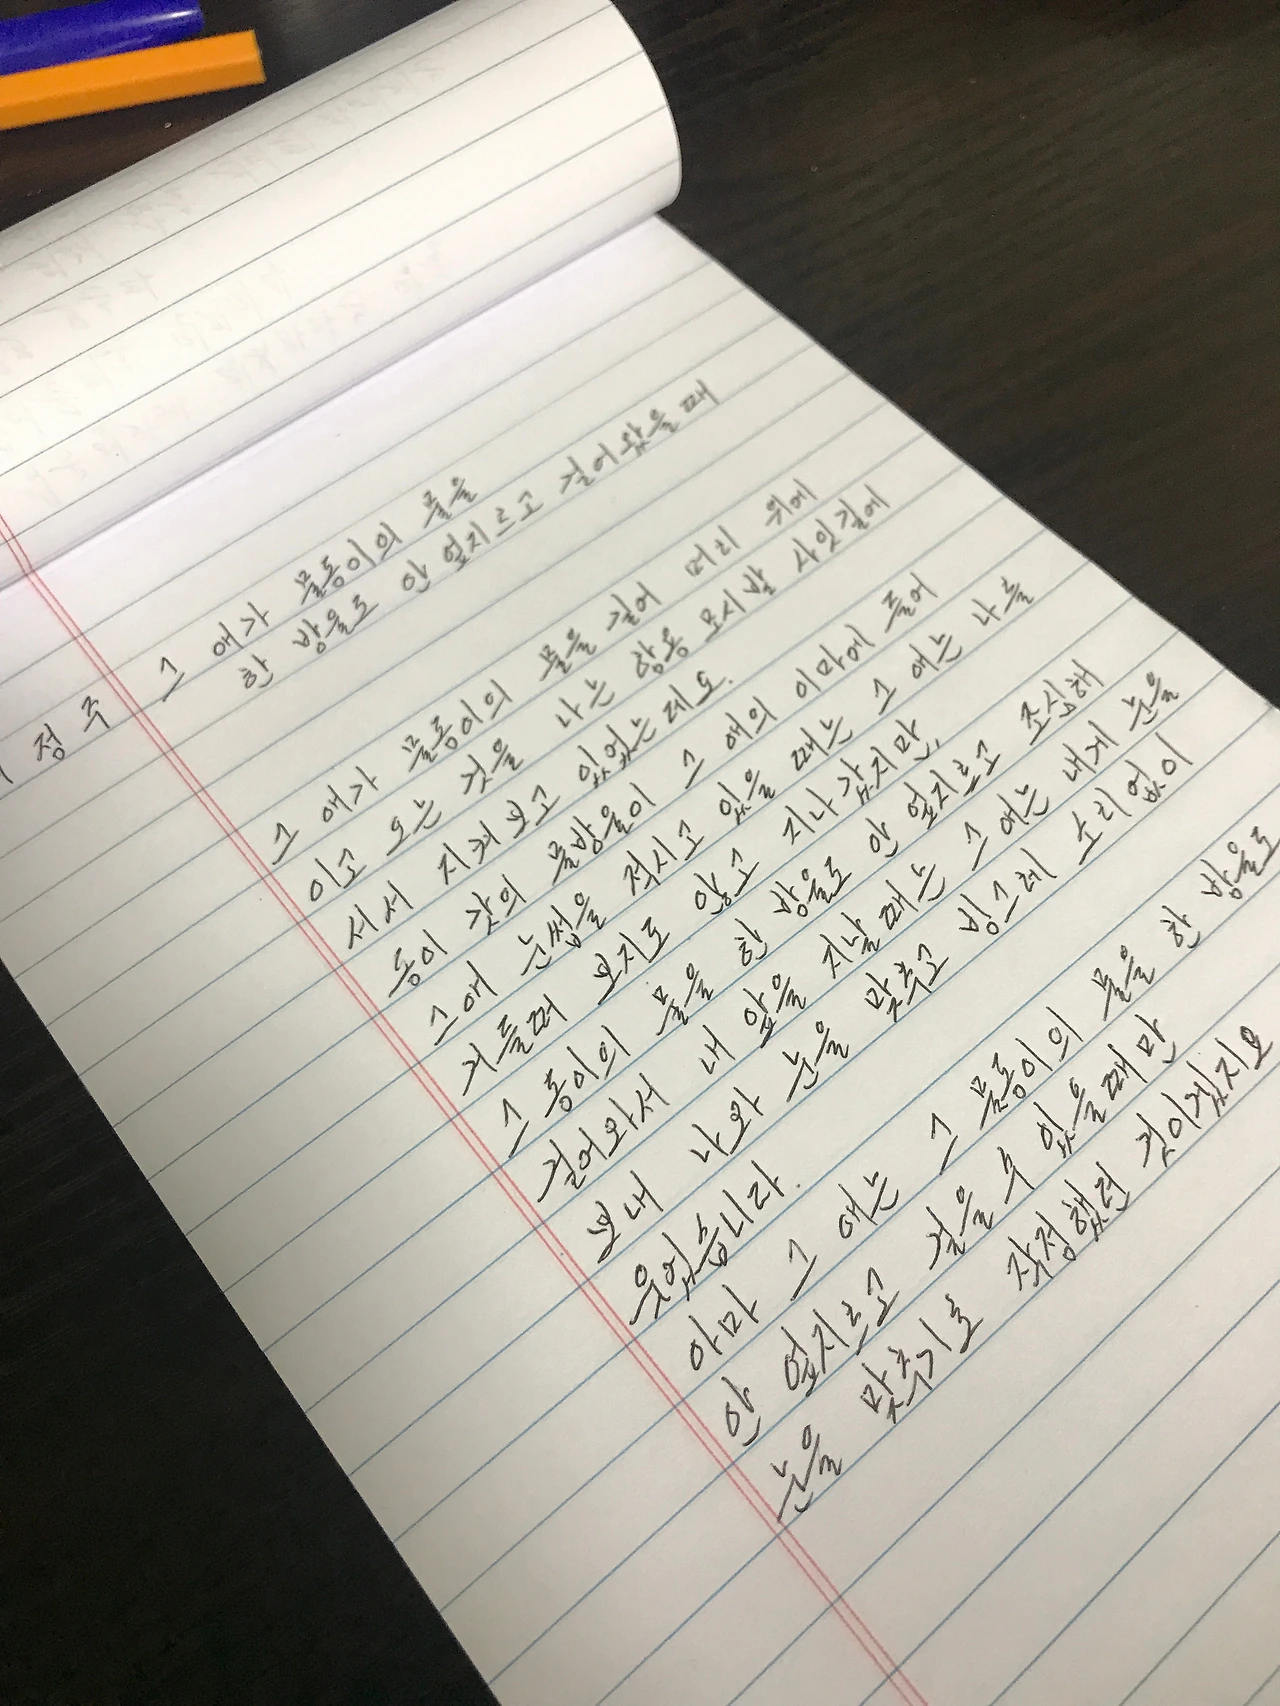 그 애가 물동이의 물을
한 방울도 안 엎지르고 걸어왔을 때
정주
그 애가 물동이의 물을 길어 머리 위에
이고 오는 것을 나는 항용 모시밭 사잇길에
서서 지켜보고 있었는데요.
동이 갓의 물방울이 그 애의 이마에 들어
그애 눈썹을 적시고 있을 때는 그 애는 나를
거들떠 보지도 않고 지나갔지만,
그 동이의 물을 한 방울도 안 엎지르고 조심해
걸어와서 내 앞을 지날때는 그 애는 내게 눈을
보내 나와 눈을 맞추고 빙그레 소리없이
웃었습니다.
아마 그 애는 그 물동이의 물을 한 방울도
안 엎지르고 걸을 수 있을때만
눈을 맞추기로 작정했던 것이겠지요